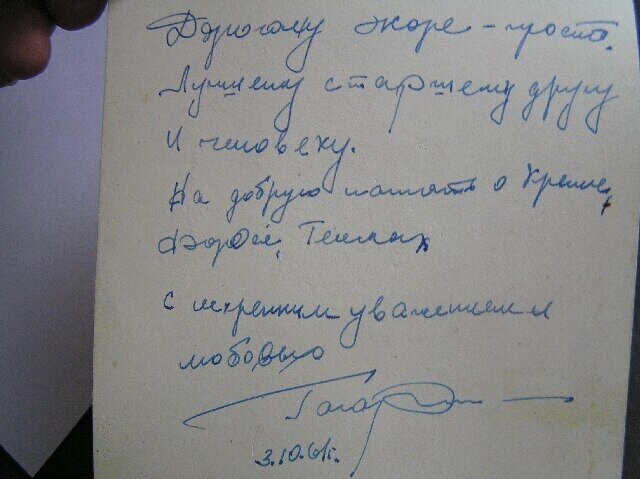 Дорогому Жоре - просто.
Лучшему старшему другу
и человеку.
На добрую память о Крыме,
Форосе,
с искренним уважением и
любовью
Гагарин
3.10.61г.